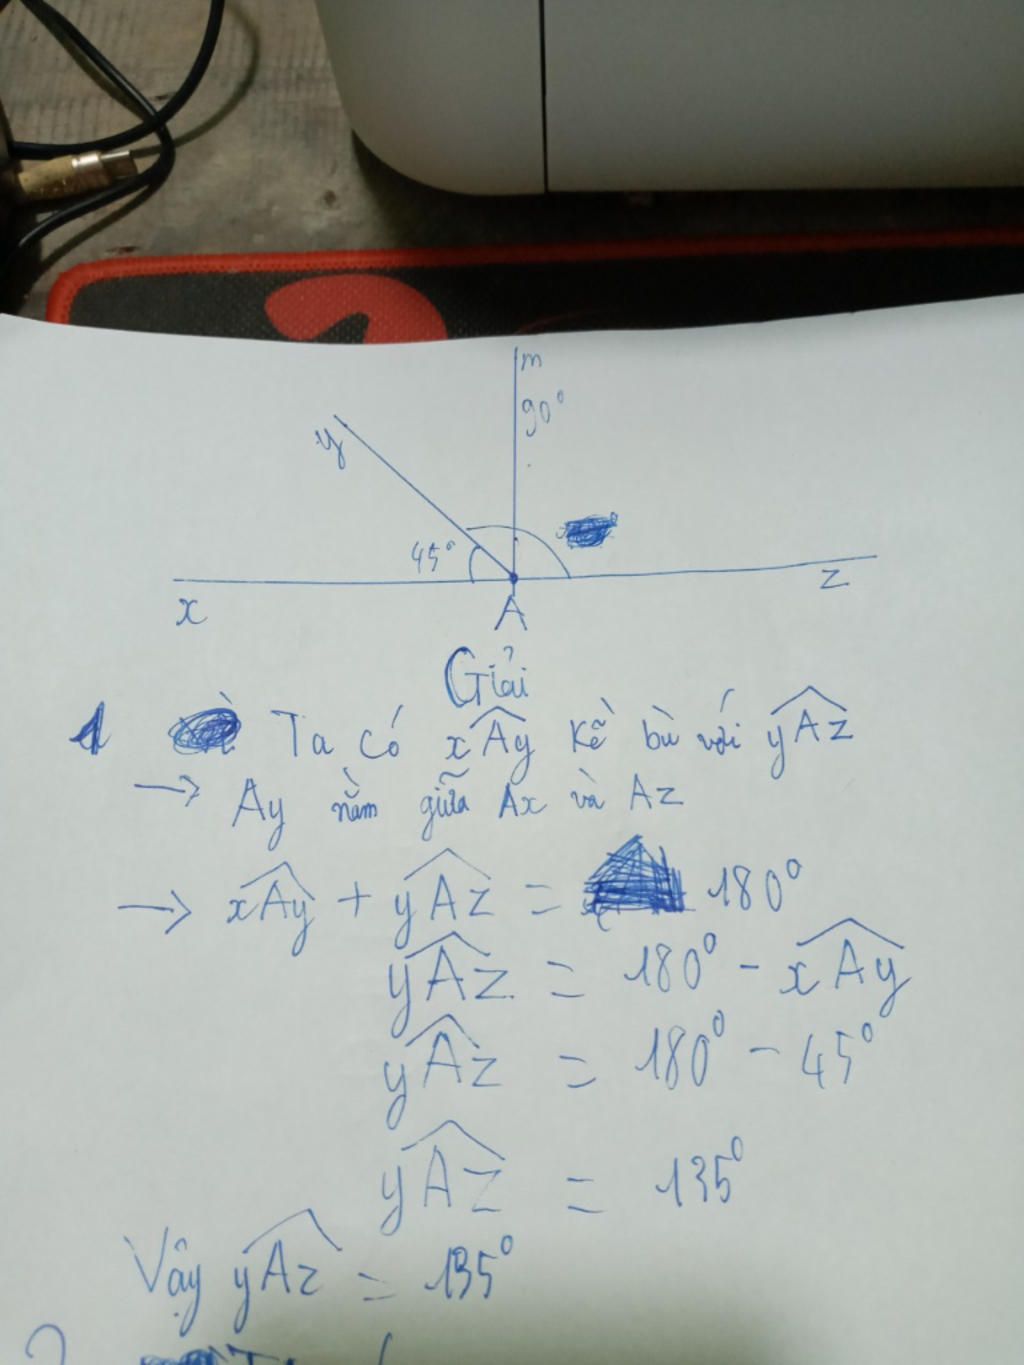 m
90°
y
45°
x
A
z
Giải
1 Ta có xAy kề bù với yAz
→ Ay nằm giữa Ax và Az
→ xAy + yAz = 180°
yAz = 180° - xAy
yAz = 180° - 45°
yAz = 135°
Vậy yAz = 135°